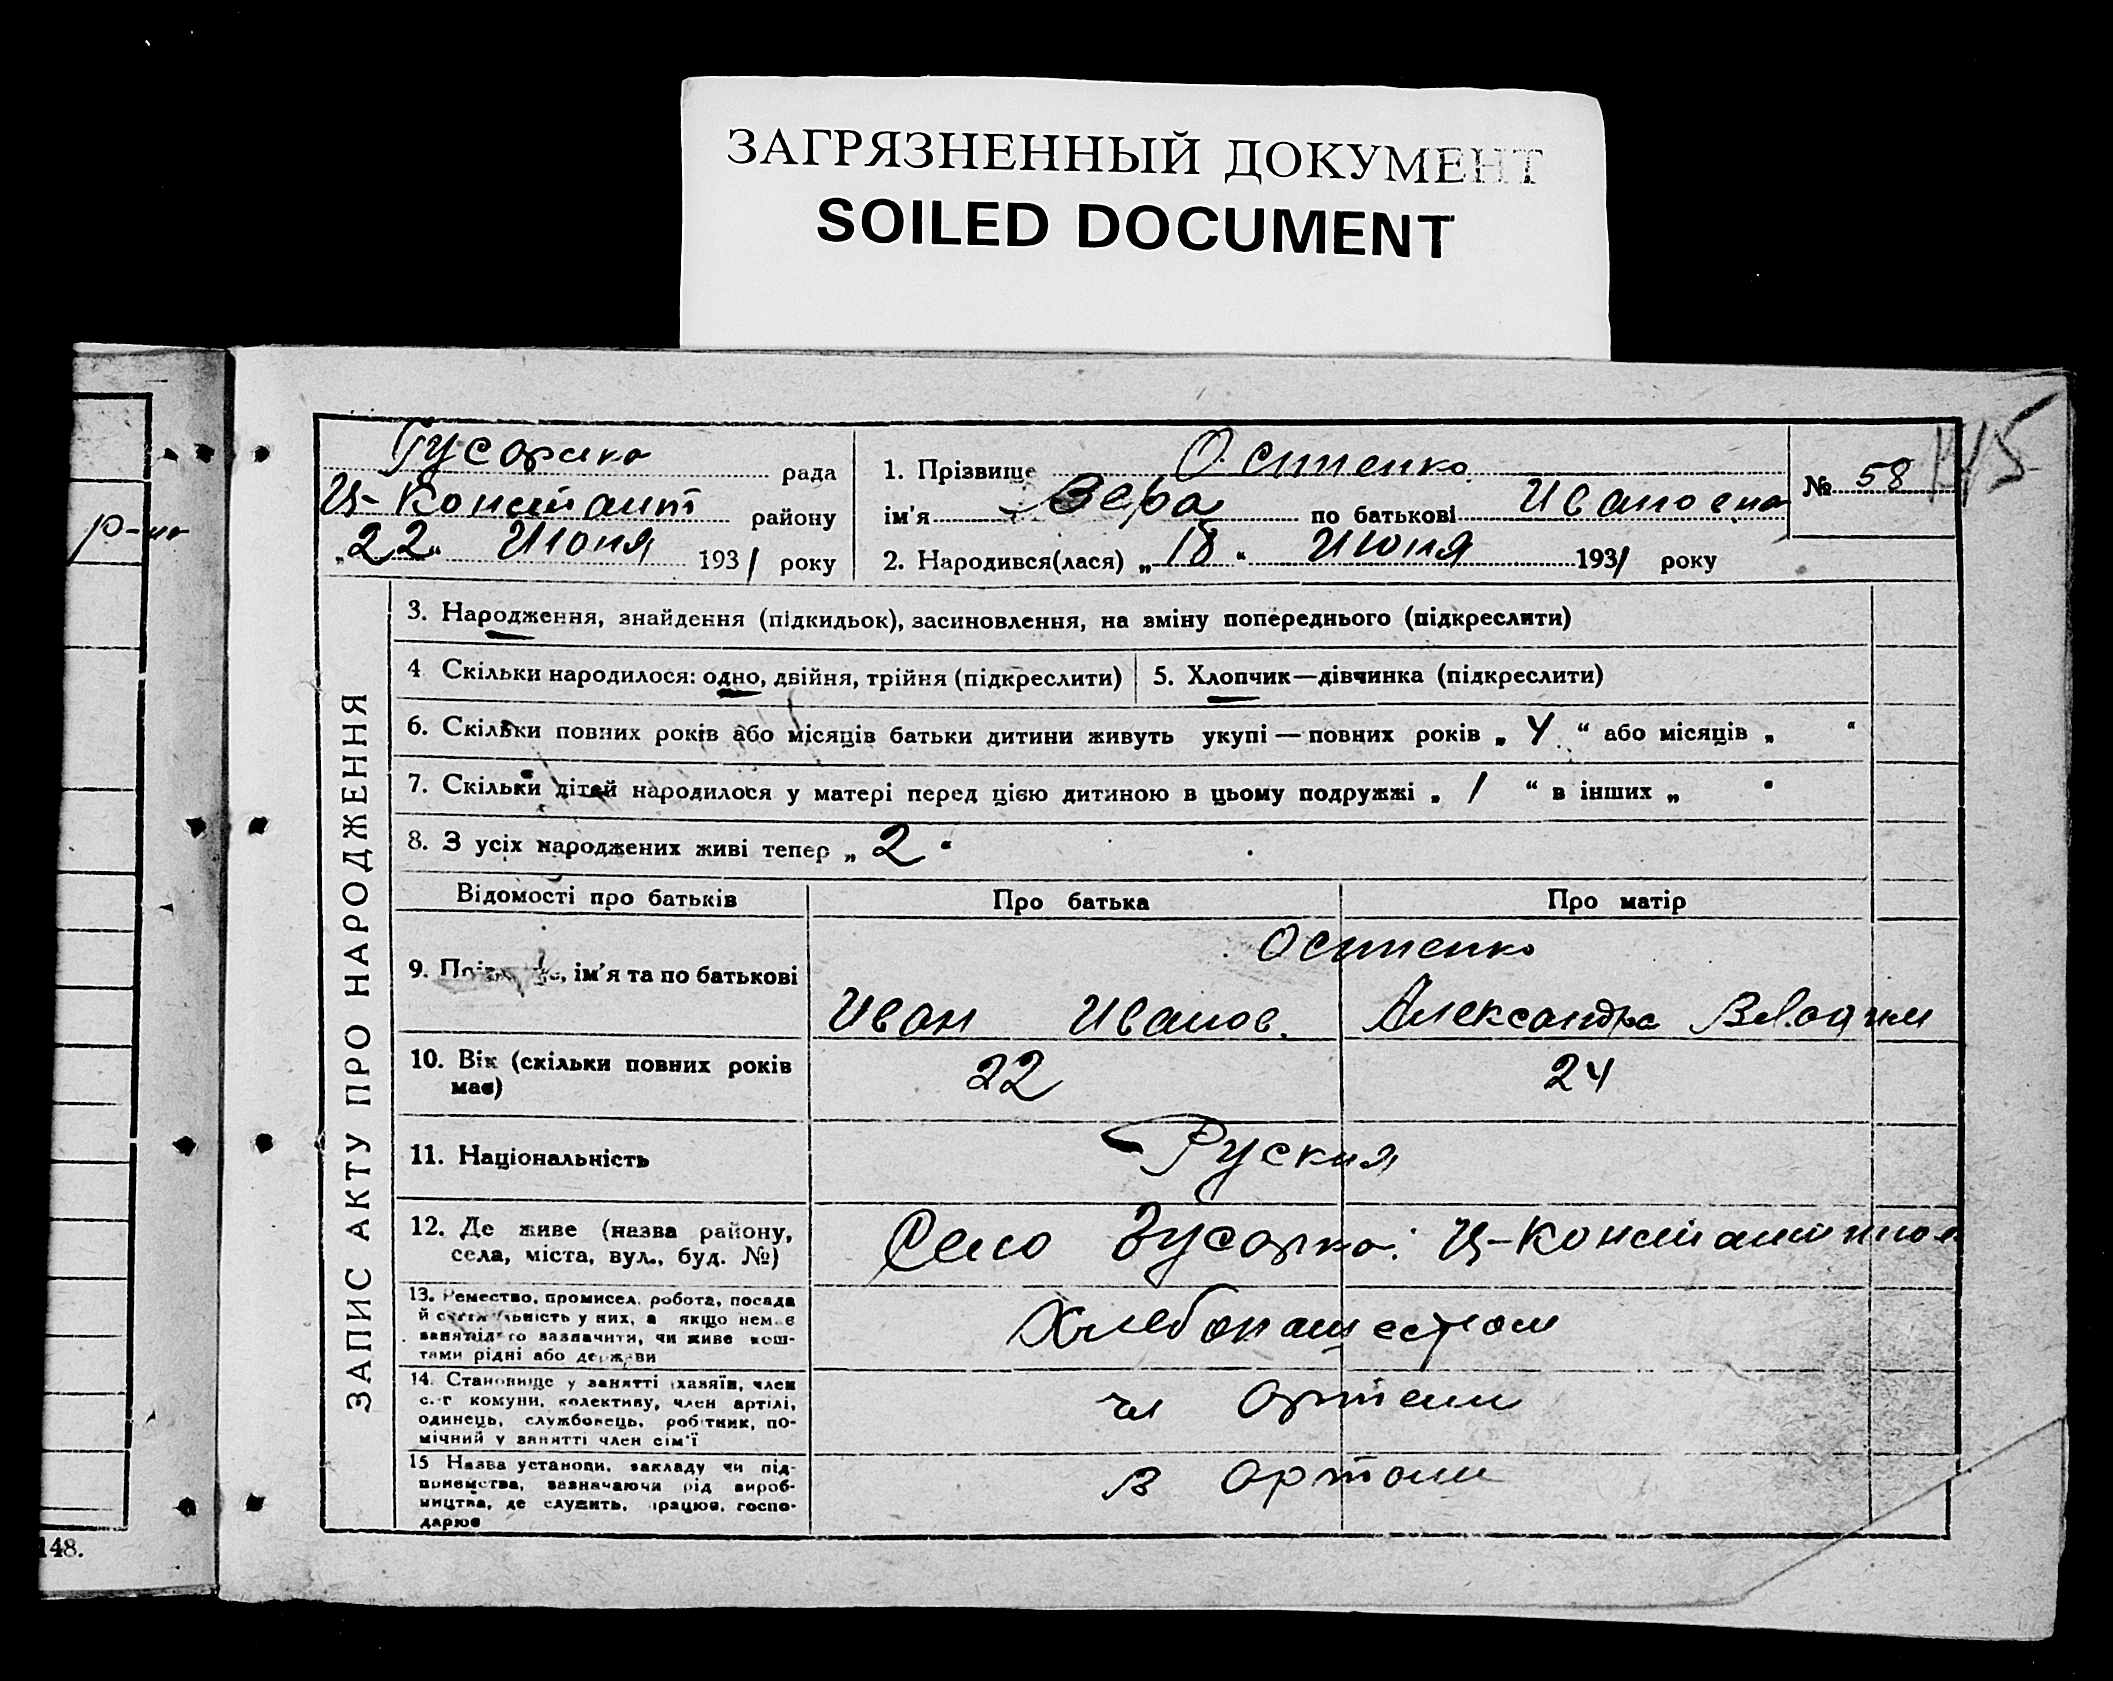 ЗАГРЯЗНЕННЫЙ ДОКУМЕНТ
SOILED DOCUMENT
145
р-но
148.
Гусарка рада
Ц-Констант району
„22“ Июня 1931 року
1. Прізвище Остпенко
ім'я Вера по батькові Ивановна
2. Народився(лася) „18“ Июня 1931 року
№ 58
ЗАПИС АКТУ ПРО НАРОДЖЕННЯ
3. Народження, знайдення (підкидьок), засиновлення, на зміну попереднього (підкреслити)
4 Скільки народилося: одно, двійня, трійня (підкреслити)
5. Хлопчик—дівчинка (підкреслити)
6. Скільки повних років або місяців батьки дитини живуть укупі — повних років „ 4 “ або місяців „ “
7. Скільки дітей народилося у матері перед цією дитиною в цьому подружжі „ 1 “ в інших „ “
8. З усіх народжених живі тепер „ 2 “
Відомості про батьків Про батька Про матір
Остпенко
9. ім'я та по батькові
Иван Иванов. Александра
10. Вік (скільки повних років має) 22 24
11. Національність Руския
12. Де живе (назва району, села, міста, вул., буд. №)
Село Гусарка. Ц-Константинов
13. Ремество, промисел, робота, посада
й у них, а якщо нем є
зазначити, чи живе кош-
тами рідні або держави
Хлебопашеством
14. Становище у занятті (хазяїн, член
с.-г комуни, колективу, член артілі,
одинець, службовець, робітник, по-
мічний у занятті член сім'ї
чл Артели
15 Назва установи, закладу чи під-
приємства, зазначаючи рід вироб-
ництва, де служить, працює, госпо-
дарює
в Артели